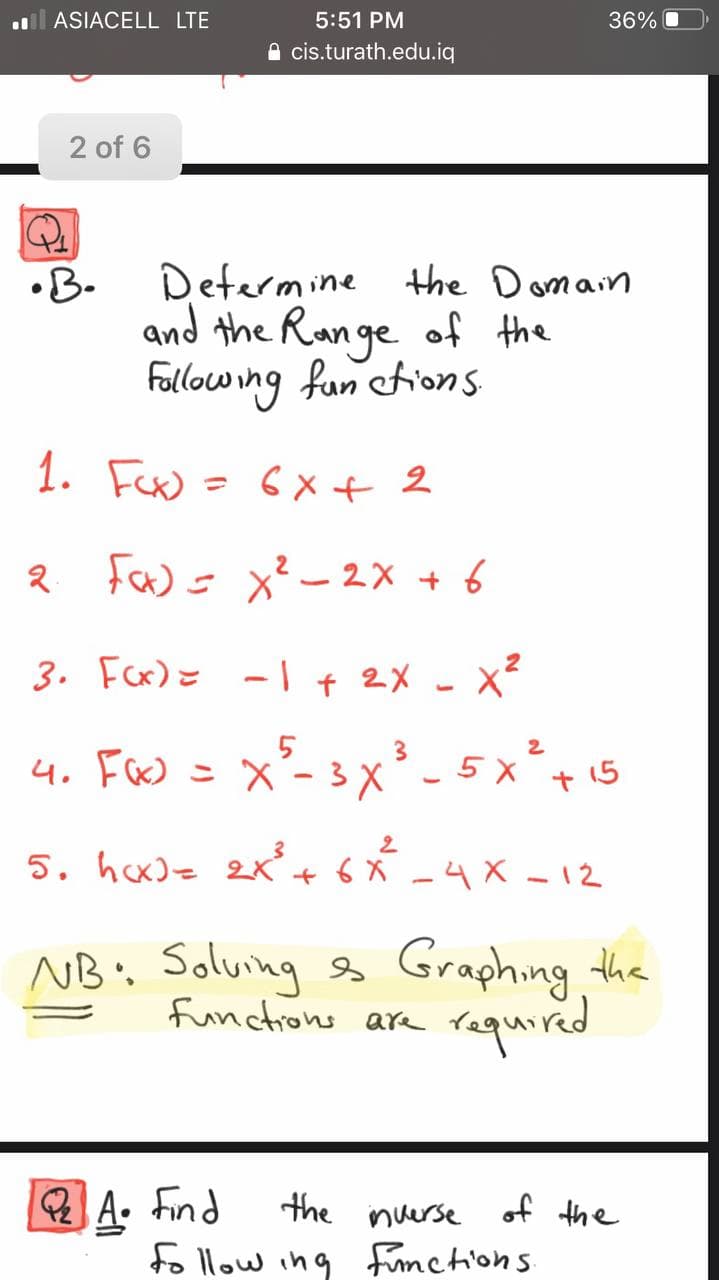 ASIACELL LTE 5:51 PM 36%
cis.turath.edu.iq
2 of 6
Q1
•B. Determine the Domain
and the Range of the
Following functions.
1. F(x) = 6x + 2
2. F(x) = x² - 2x + 6
3. F(x) = -1 + 2x - x²
4. F(x) = x⁵ - 3x³ - 5x² + 15
5. h(x) = 2x³ + 6x² - 4x - 12
NB: Solving & Graphing the
functions are required
Q2 A. Find the inverse of the
Following functions.